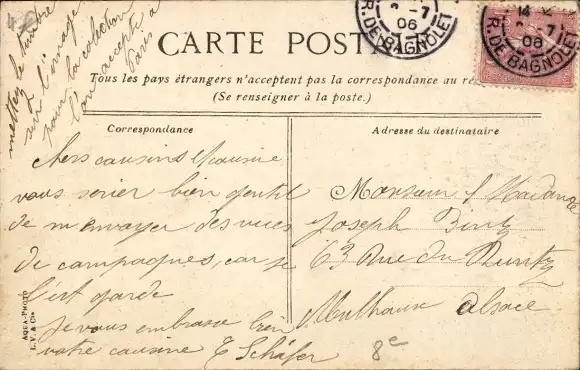 mettez le timbre
sur l'image
pour la colection
l'on accepte a
Paris
CARTE POSTALE
Tous les pays étrangers n'acceptent pas la correspondance au
(Se renseigner à la poste.)
14
2-7
06
R. DE BAGNOLET
Correspondance
chers cousins et cousine
vous serier bien gentil
de m'envoyer des vues
de campagnes, car je
l'est garde
Je vous embrasse bien
votre cousine E Schäfer
Adresse du destinataire
Monsieur & Madame
Joseph Bintz
63 Rue du
Mulhouse Alsace
8e
AQUA-PHOTO
L.V. & Cie